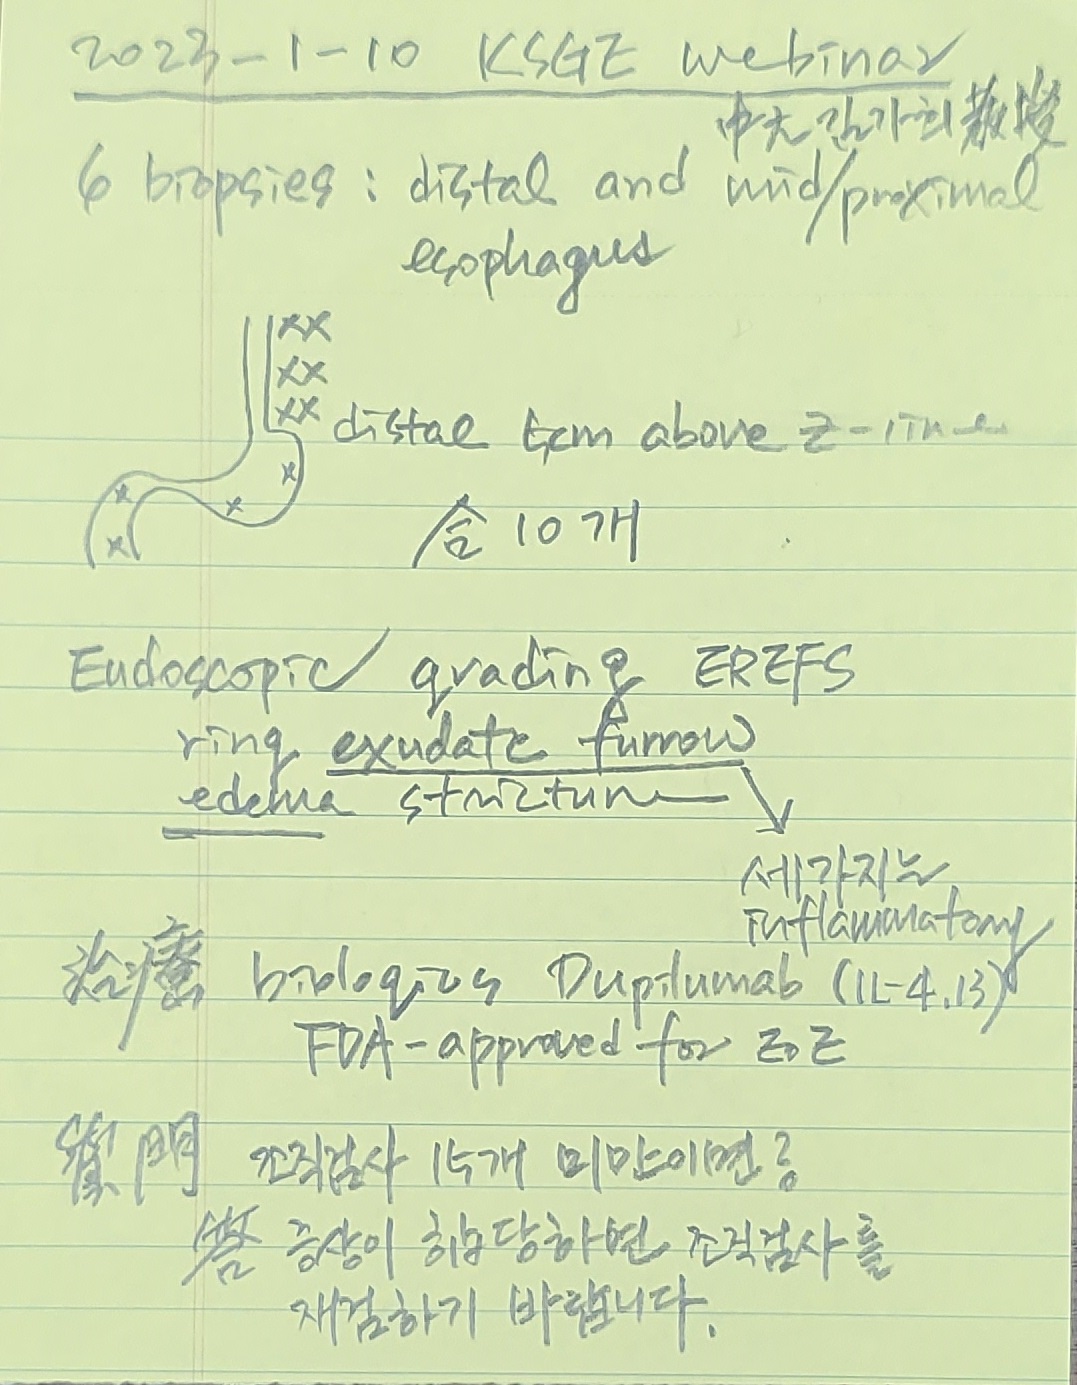 2023-1-10 KSGE webinar
中大 김가희 教授
6 biopsies : distal and mid/proximal
esophagus
xx
xx
xx distal 5cm above Z-line
x
x x
x
合 10개
Endoscopic grading EREFS
ring exudate furrow
edema stricture
세가지는
inflammatory
治療 biologics Dupilumab (IL-4.13)
FDA-approved for EoE
質問 조직검사 15개 미만이면?
答 증상이 해당하면 조직검사를
재검하기 바랍니다.